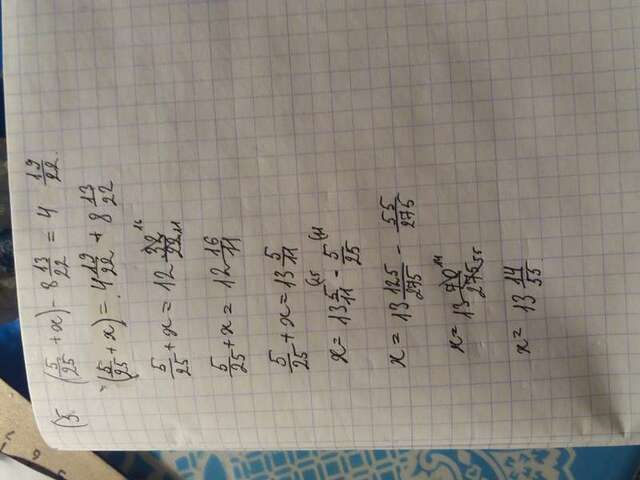 (5. (5/25 + x) - 8 13/22 = 4 19/22
(5/25 + x) = 4 19/22 + 8 13/22
5/25 + x = 12 32/22 16 11
5/25 + x = 12 16/11
5/25 + x = 13 5/11
x = 13 5/11 (25 - 5/25 (11
x = 13 125/275 - 55/275
x = 13 70/275 14 55
x = 13 14/55